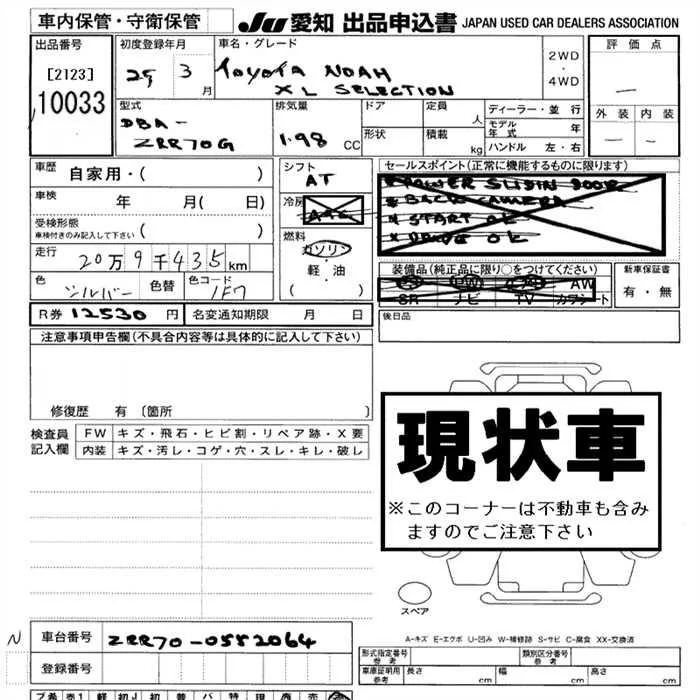 車内保管・守衛保管 JU 愛知 出品申込書 JAPAN USED CAR DEALERS ASSOCIATION
出品番号
[2123]
10033
初度登録年月
25 3 月
車名・グレード
TOYOTA NOAH
XL SELECTION
2WD
・
4WD
評価点
―
外装 内装
― ―
型式
DBA-
ZRR70G
排気量
1.98 CC
ドア 定員 人
形状 積載 kg
ディーラー・並行
モデル年式 年
ハンドル 左・右
車歴 自家用・( )
車検 年 月( 日)
受検形態
車検付きのみ記入して下さい ( )
走行 20万9千435km
色 シルバー 色替 色コード 1F7
シフト
AT
冷房
AAC
燃料
ガソリン
・
軽・油
( )
セールスポイント(正常に機能するものに限ります)
* POWER SLIDIN DOOR
* BACK CAMERA
* START OK
* DRIVE OK
装備品(純正品に限り○をつけてください)
AW
SR ナビ TV カワシート
新車保証書
有・無
R券 12530 円 名変通知期限 月 日
後日品
注意事項申告欄(不具合内容等は具体的に記入して下さい)
修復歴 有〔箇所 〕
検査員記入欄
FW キズ・飛石・ヒビ割・リペア跡・X要
内装 キズ・汚レ・コゲ・穴・スレ・キレ・破レ
現状車
※このコーナーは不動車も含み
ますのでご注意下さい
スペア
A-キズ E-エクボ U-凹み W-補修跡 S-サビ C-腐食 XX-交換済
N 車台番号 ZRR70-0552064
登録番号
形式指定番号 参考 類別区分番号 参考
車庫証明用 参考 長さ cm 幅 cm 高さ cm